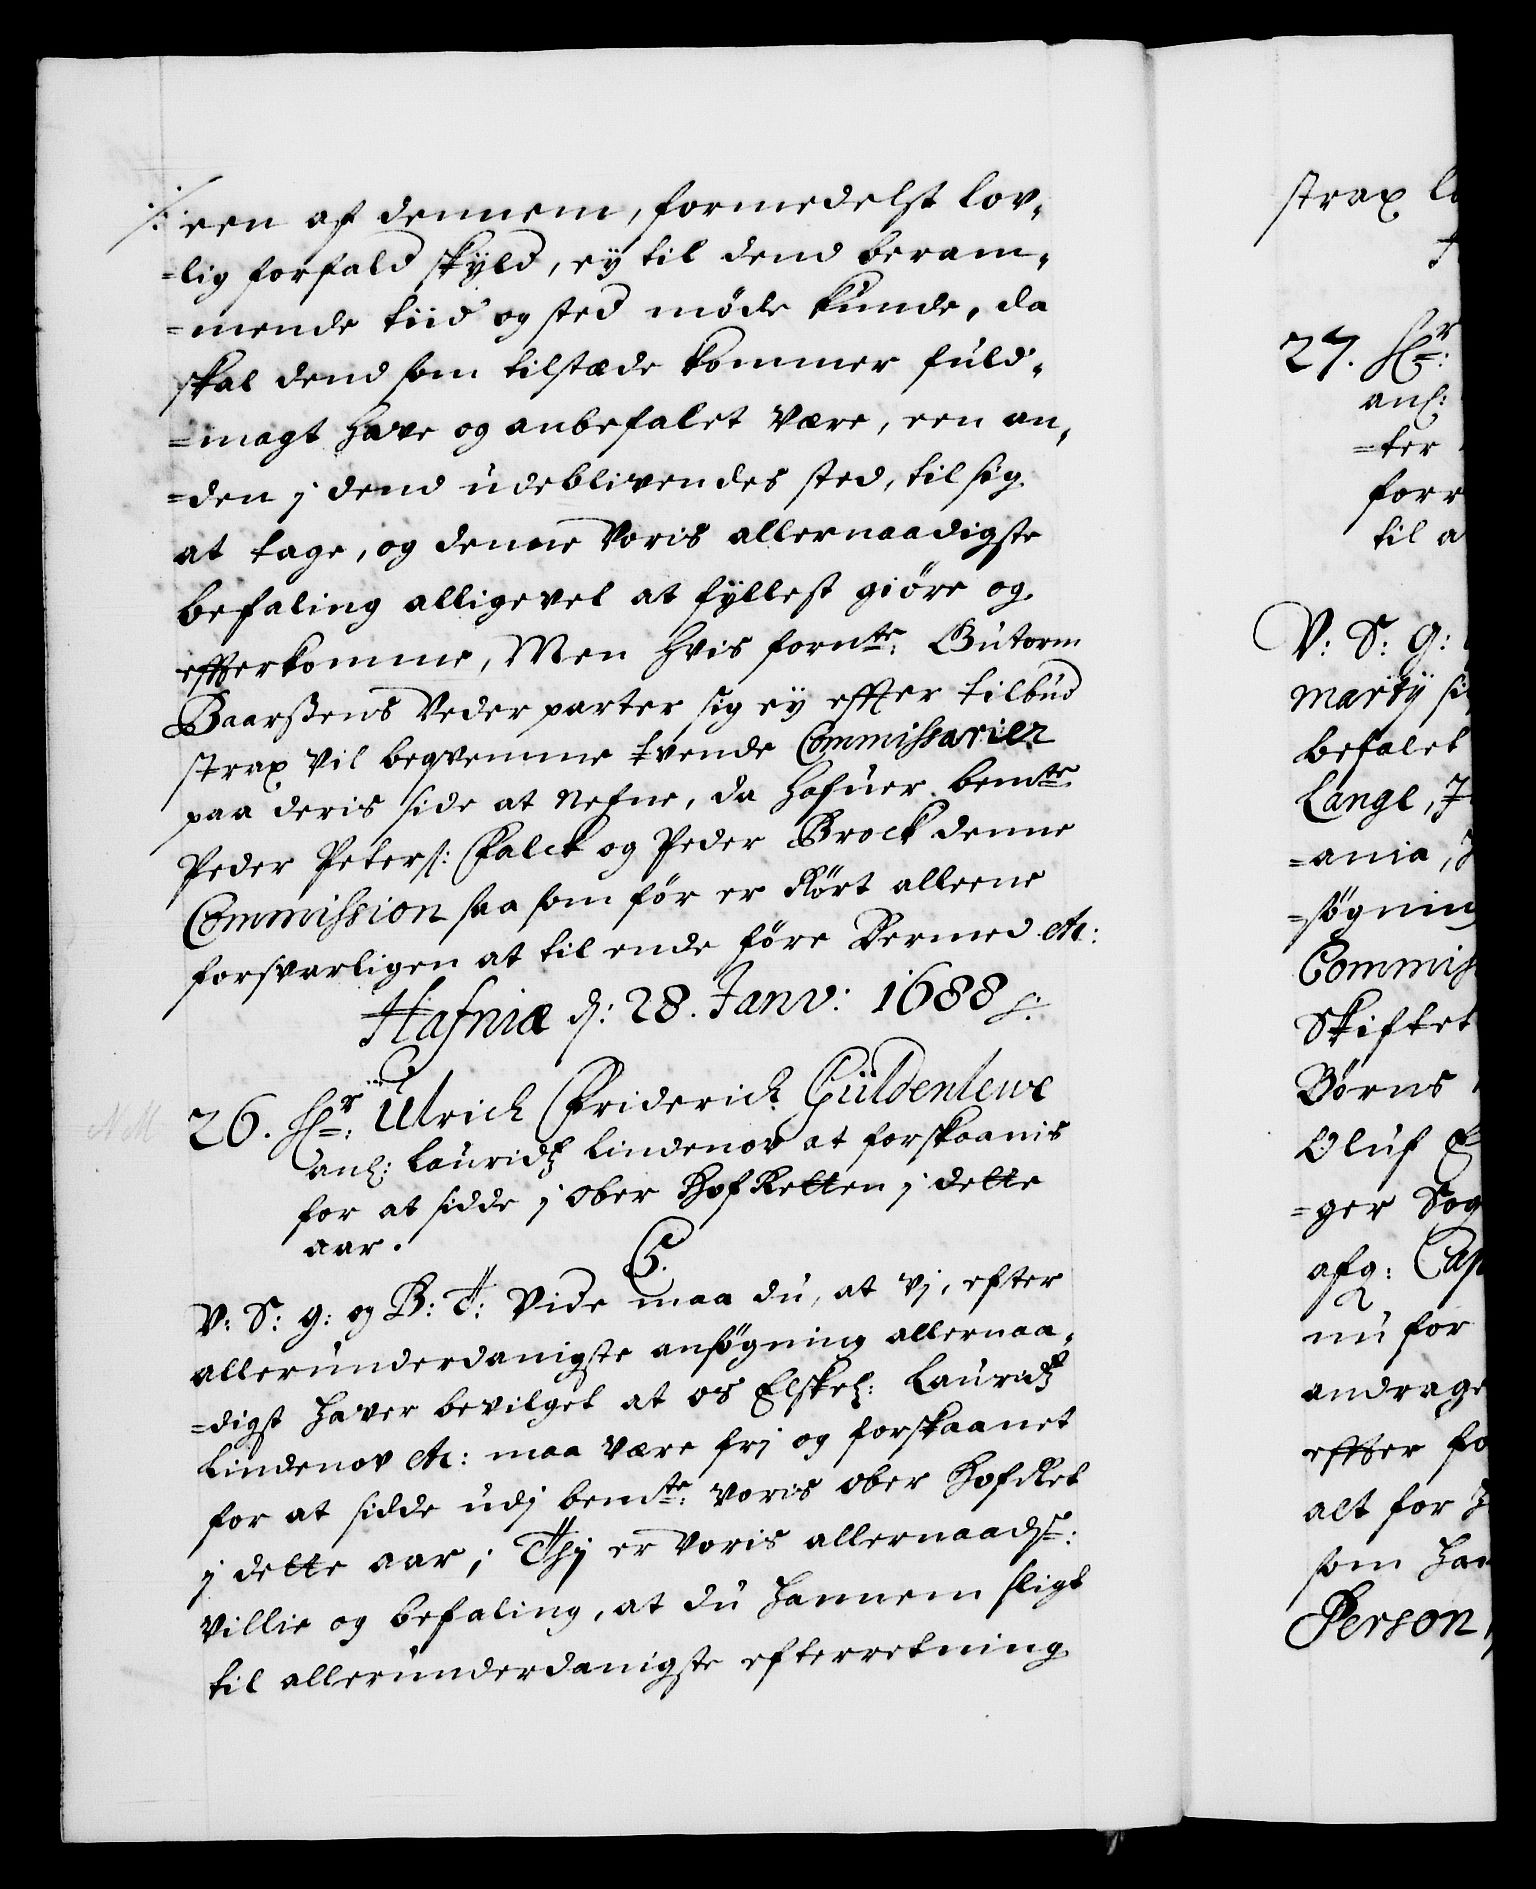 ·/: een af dennem, formedelst lov-
=lig forfald skyld, ey til dend beram-
=mende tiid og sted møde kunde, da
skal dend som tilstæde kommer fuld-
=magt have og anbefalet være, een an-
=den j dend udeblivendes sted, til sig
at tage, og denne Voris allernaadigste
befaling alligevel at fyllest giøre og
effterkomme, Men hvis fornte: Gutorm
Baarsens Vederparter sig ey effter tilbud
strax vil beqvemme tvende Commissarier
paa deris side at nefne, da hafuer bemte
Peder Peters: Falck og Peder Brock denne
Commission saa som før er rørt alleene
forsvarligen at til ende føre Dermed etc:
Hafniæ d: 28. Janv: 1688
26. Hr: Ulrich Friderich Güldenlewe
anl: Lauridtz Lindenov at forskaanis
for at sidde j Ober Hof Retten j dette
aar.
C5.
V: S: g: og B: T: Vide maa du, at vj, efter
allerunderdanigste ansøgning allernaa-
=digst haver bevilget at os Elskel: Lauridtz
Lindenov etc: maa være frj og forskaanet
for at sidde udj bemte: voris Ober Hof Ret
j dette aar; Thj er Voris allernaadste:
villie og befaling, at du hannem sligt
til allerunderdanigste efterretning
strax
27. Hr:
anl:
=ter
forr
til a
V: S: g:
marty si
befalet
Lange,
=ania,
=søgning
Commis
Skiftet
Børns
Oluf
=ger Sog
afg: Cap
nu for
andrage
effter fo
alt for
som han
Person